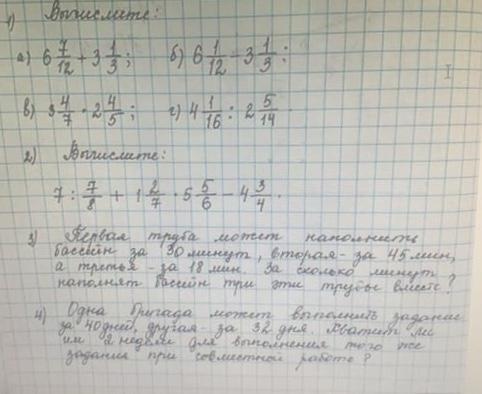 1) Вычислите:
а) 6 7/12 + 3 1/3; б) 6 1/12 - 3 1/3;
в) 3 4/7 · 2 4/5; г) 4 1/16 : 2 5/14.
2) Вычислите:
7 : 7/8 + 1 2/7 · 5 5/6 - 4 3/4.
3) Первая труба может наполнить
бассейн за 30 минут, вторая - за 45 мин,
а третья - за 18 мин. За сколько минут
наполнят бассейн три эти трубы вместе?
4) Одна бригада может выполнить задание
за 40 дней, другая - за 32 дня. Хватит ли
им 2 недели для выполнения того же
задания при совместной работе?